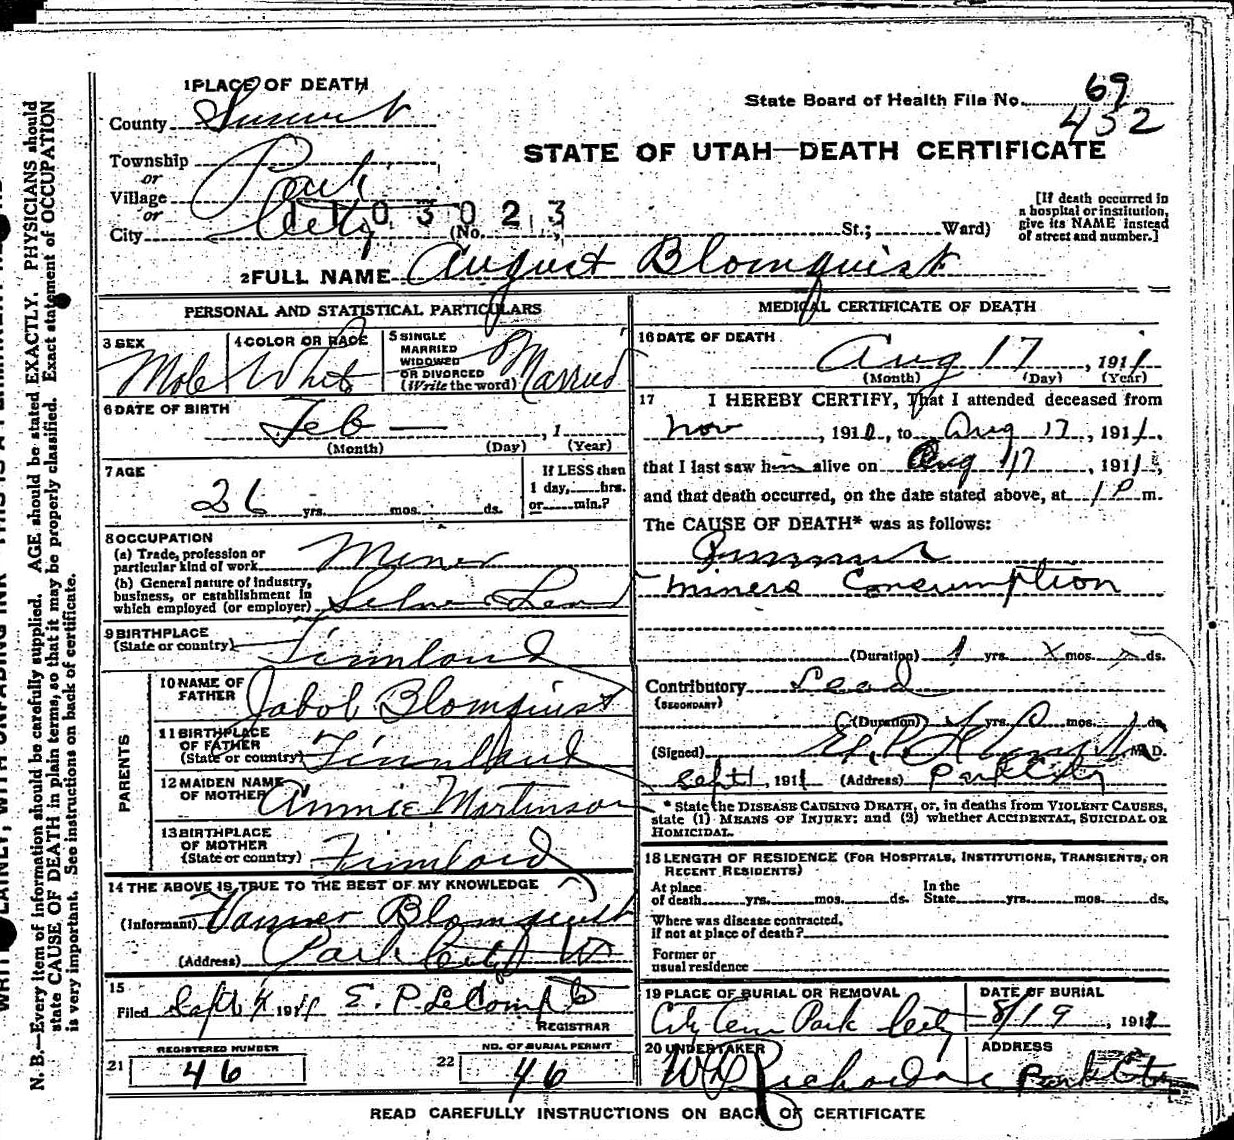 1 PLACE OF DEATH
County Summit
Township
or
Village
or
City
Park
City
1103023
(No. St.; Ward)
State Board of Health File No.
69
432
STATE OF UTAH—DEATH CERTIFICATE
[If death occurred in
a hospital or institution,
give its NAME instead
of street and number.]
2 FULL NAME August Blomquist
PERSONAL AND STATISTICAL PARTICULARS
3 SEX
Male
4 COLOR OR RACE
White
5 SINGLE
MARRIED
WIDOWED
OR DIVORCED
(Write the word)
Married
6 DATE OF BIRTH
Feb — , 1
(Month) (Day) (Year)
7 AGE
26 yrs. mos. ds.
If LESS than
1 day, hrs.
or min.?
8 OCCUPATION
(a) Trade, profession or
particular kind of work Miner
(b) General nature of industry,
business, or establishment in
which employed (or employer) Silver Lead
9 BIRTHPLACE
(State or country) Finnland
PARENTS
10 NAME OF
FATHER Jakob Blomquist
11 BIRTHPLACE
OF FATHER
(State or country) Finnland
12 MAIDEN NAME
OF MOTHER Annie Martinson
13 BIRTHPLACE
OF MOTHER
(State or country) Finnland
14 THE ABOVE IS TRUE TO THE BEST OF MY KNOWLEDGE
(Informant) Blomquist
(Address) Park City Ut
15
Filed Sept 1911 E. P. LeCompte
REGISTRAR
21
REGISTERED NUMBER
46
22
NO. OF BURIAL PERMIT
46
MEDICAL CERTIFICATE OF DEATH
16 DATE OF DEATH
Aug 17 , 1911
(Month) (Day) (Year)
17 I HEREBY CERTIFY, That I attended deceased from
Nov , 1910, to Aug 17, 1911,
that I last saw him alive on Aug 17, 1911,
and that death occurred, on the date stated above, at 1 P m.
The CAUSE OF DEATH* was as follows:
miners Consumption
(Duration) 1 yrs. X mos. ds.
Contributory Lead
(SECONDARY)
(Duration) yrs. mos. ds.
(Signed) M.D.
Sept 1, 1911 (Address) Park City
* State the DISEASE CAUSING DEATH, or, in deaths from VIOLENT CAUSES,
state (1) MEANS OF INJURY; and (2) whether ACCIDENTAL, SUICIDAL OR
HOMICIDAL.
18 LENGTH OF RESIDENCE (FOR HOSPITALS, INSTITUTIONS, TRANSIENTS, OR
RECENT RESIDENTS)
At place In the
of death yrs. mos. ds. State yrs. mos. ds.
Where was disease contracted,
if not at place of death?
Former or
usual residence
19 PLACE OF BURIAL OR REMOVAL
City Cem Park City
DATE OF BURIAL
8/19, 1911
20 UNDERTAKER
Richardson
ADDRESS
Park City
READ CAREFULLY INSTRUCTIONS ON BACK OF CERTIFICATE
N. B.—Every item of information should be carefully supplied. AGE should be stated EXACTLY. PHYSICIANS should
state CAUSE OF DEATH in plain terms, so that it may be properly classified. Exact statement of OCCUPATION
is very important. See instructions on back of certificate.